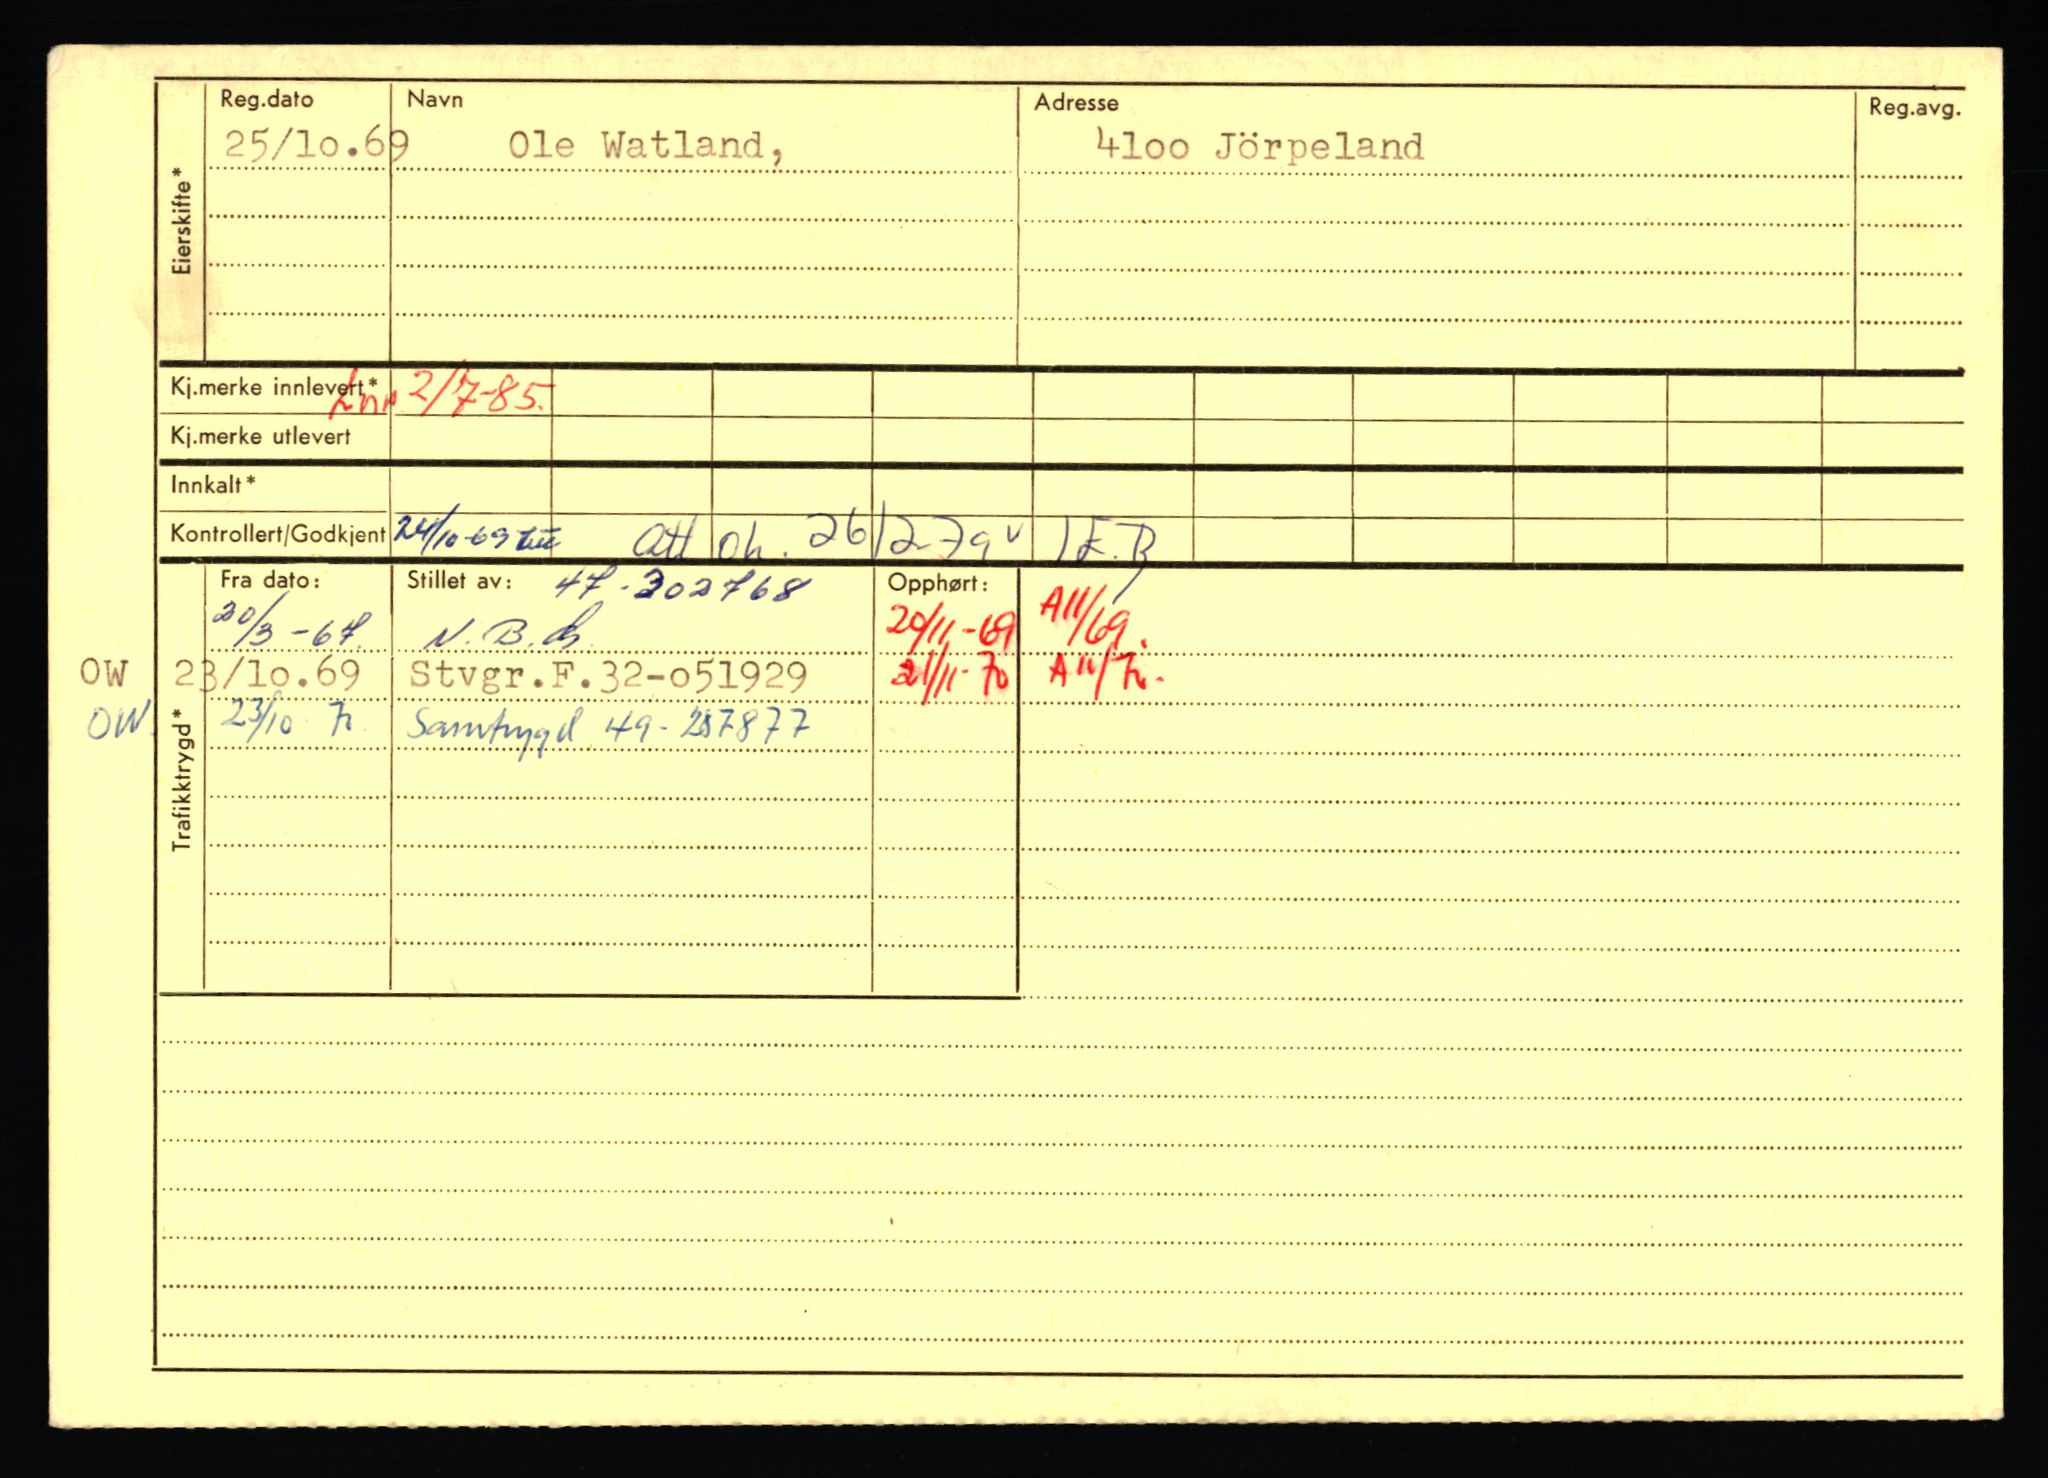 Reg.dato Navn Adresse Reg.avg.
25/10.69 Ole Watland, 4100 Jörpeland
Eierskifte*
Kj.merke innlevert* 2/7-85.
Kj.merke utlevert
Innkalt*
Kontrollert/Godkjent 24/10-69 Att oh. 26/2-79 E.B
Fra dato: Stillet av: 47-302768 Opphørt:
20/3-67. N.B. 20/11-69 A11/69.
OW 23/10.69 Stvgr.F.32-051929 21/11-70 A11/70.
OW. 23/10 70 Samtrygd 49-287877
Trafikktrygd*